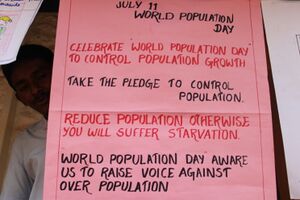 JULY 11
WORLD POPULATION
DAY
CELEBRATE 'WORLD POPULATION DAY'
TO CONTROL POPULATION GROWTH
TAKE THE PLEDGE TO CONTROL
POPULATION.
REDUCE POPULATION OTHERWISE
YOU WILL SUFFER STARVATION.
WORLD POPULATION DAY AWARE
US TO RAISE VOICE AGAINST
OVER POPULATION